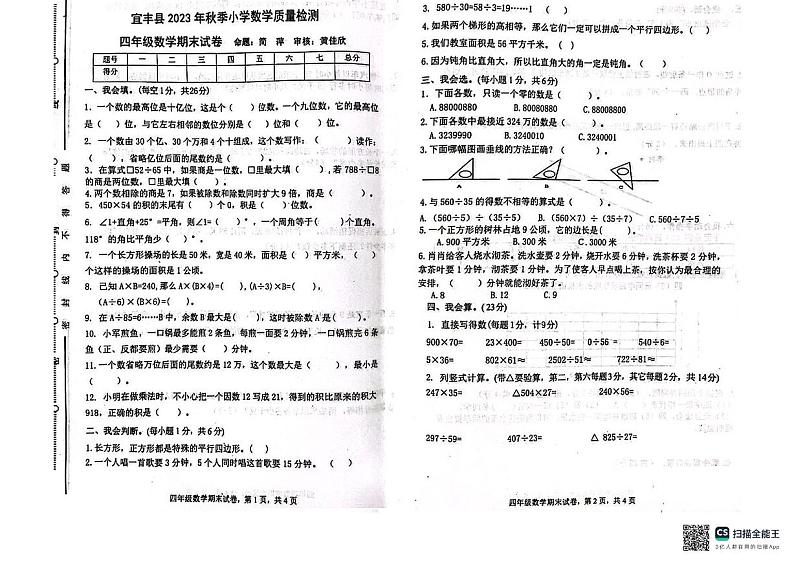 宜丰县 2023 年秋季小学数学质量检测
四年级数学期末试卷 命题：简 萍 审核：黄佳欣
题号 一 二 三 四 五 六 七 总分
得分
一、我会填。(每空1分，共26分)
1. 一个数的最高位是十亿位，这是个（ ）位数。一个九位数，它的最高位
是（ ）位，与它左右相邻的数位分别是（ ）位和（ ）位。
2. 一个数由30个亿、30个万和4个十组成，这个数写作：（ ）读作：
（ ），省略亿位后面的尾数约是（ ）。
3. 在算式□52÷65中，如果商是一位数，□里最大填（ ），若788÷□8
的商是两位数，□里最大填（ ）。
4. 两个数相除的商是7，如果被除数和除数同时扩大9倍，商是（ ）。
5. 450×54的积的末尾有（ ）个0，积是（ ）位数。
6. ∠1+直角+25°=平角，则∠1=（ ）°，一个周角等于（ ）个直角。
118°的角比平角少（ ）°。
7. 一个长方形操场的长是50米，宽是40米，面积是（ ）平方米，（ ）
个这样的操场的面积是1公顷。
8. 已知A×B=240,那么A×(B×4)=( ),(A÷3)×B=( ),
(A÷6)×(B×6)=( )。
9. 在A÷85=6……B中，余数B最大是（ ），这时被除数A是（ ）。
10. 小军煎鱼，一口锅最多能煎2条鱼，每煎一面要2分钟，一口锅煎完6条
鱼（正、反都要煎）最少需要（ ）分钟。
11. 一个数省略万位后面的尾数约是12万，这个数最大是（ ），最小是
（ ）。
12. 小明在做乘法时，不小心把一个因数12写成21，得到的积比原来的积大
918，正确的积是（ ）。
二、我会判断。(每小题1分，共6分)
1. 长方形，正方形都是特殊的平行四边形。（ ）
2. 一个人唱一首歌要3分钟，5个人同时唱这首歌要15分钟。（ ）
四年级数学期末试卷，第1页，共4页
3. 580÷30=58÷3=19……1 （ ）
4. 如果两个梯形的高相等，那么它们一定可以拼成一个平行四边形。（ ）
5. 我们教室面积是56平方千米。（ ）
6. 因为钝角比直角大，所以比直角大的角一定是钝角。（ ）
三、我会选。(每小题1分，共6分)
1. 下面各数，只读一个零的数是（ ）。
A. 88000880 B. 80080880 C. 88008800
2. 下面各数中最接近324万的数是（ ）
A. 3239990 B. 3240010 C. 3240001
3. 下面哪幅图画垂线的方法正确？（ ）
A B C
4. 与560÷35的得数不相等的算式是（ ）。
A. (560÷5)÷(35÷5) B. (560×7)÷(35÷7) C. 560÷7÷5
5. 一个正方形的树林占地9公顷，它的边长是（ ）。
A. 900平方米 B. 300米 C. 3000米
6. 肖肖给客人烧水沏茶。洗水壶要2分钟，烧开水要6分钟，洗茶杯要2分钟，
拿茶叶要1分钟，沏茶要1分钟。为了使客人早点喝上茶，按你认为最合理的
安排，（ ）分钟就能沏好茶了。
A. 8 B. 12 C. 9
四、我会算。(23分)
1. 直接写得数(每题1分，计9分)
900×70= 23×400= 450÷50= 0÷56= 540÷6=
5×36= 802×61≈ 2502÷51≈ 722÷81≈
2. 列竖式计算。(带△要验算，第二，第六每题3分，其它每题2分，共14分)
247×35= △504×27= 240×56=
297÷59= 407÷23= △ 825÷27=
四年级数学期末试卷，第2页，共4页
密 封 线 内 不 得 答 题
CS 扫描全能王
3亿人都在用的扫描App